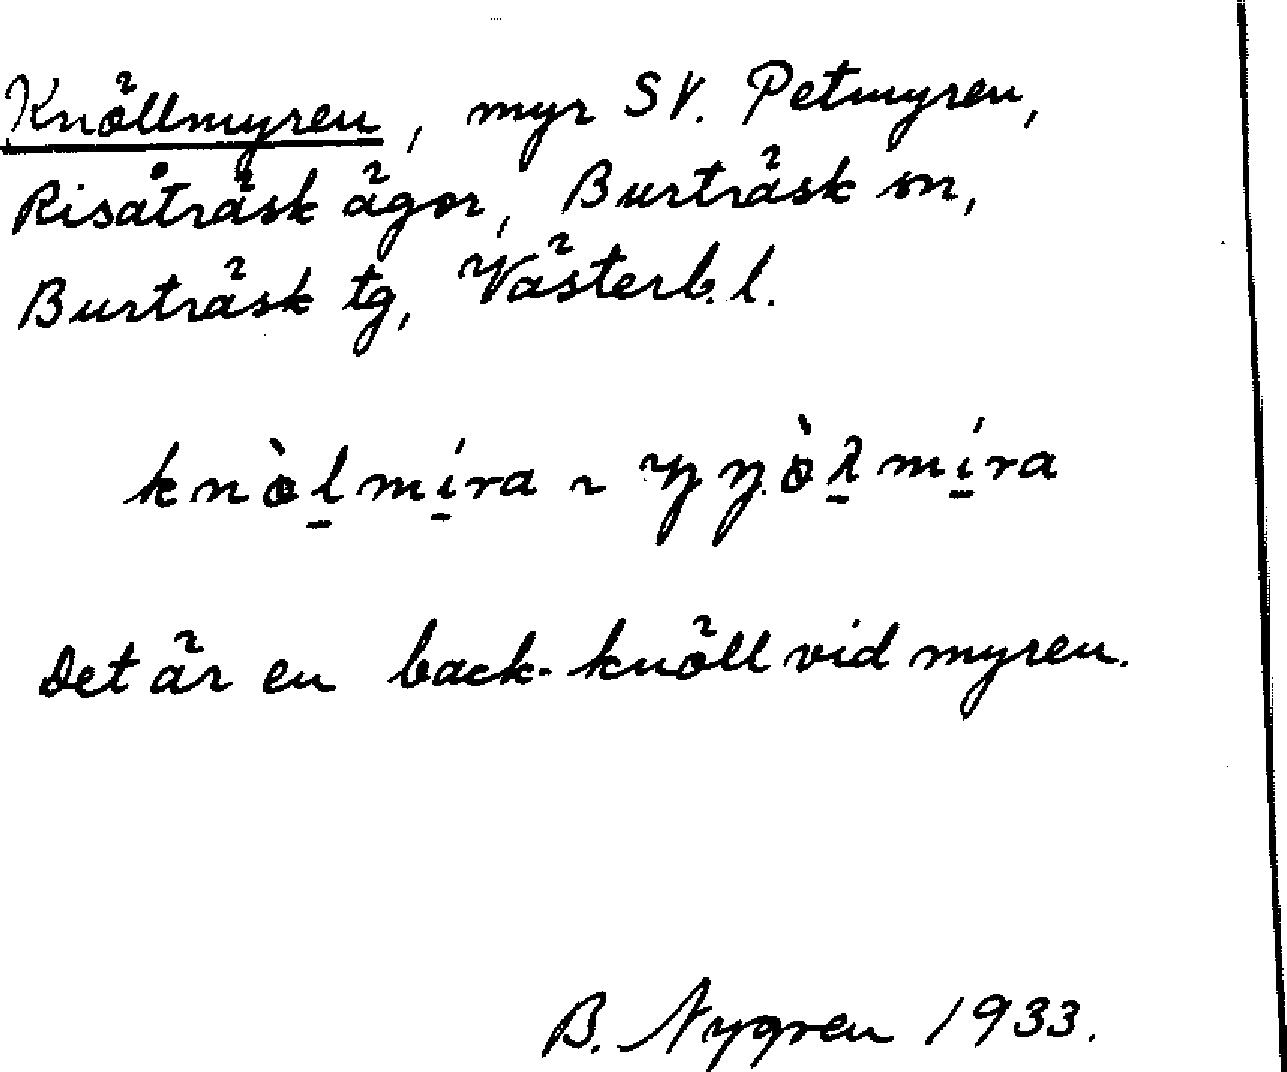 Knöllmyren, myr SV. Petmyren,
Risåträsk ägor, Burträsk sn,
Burträsk tg, Västerb. l.
knòl̠mí̠ra ~
Det är en back-knöll vid myren.
B. Nygren 1933.